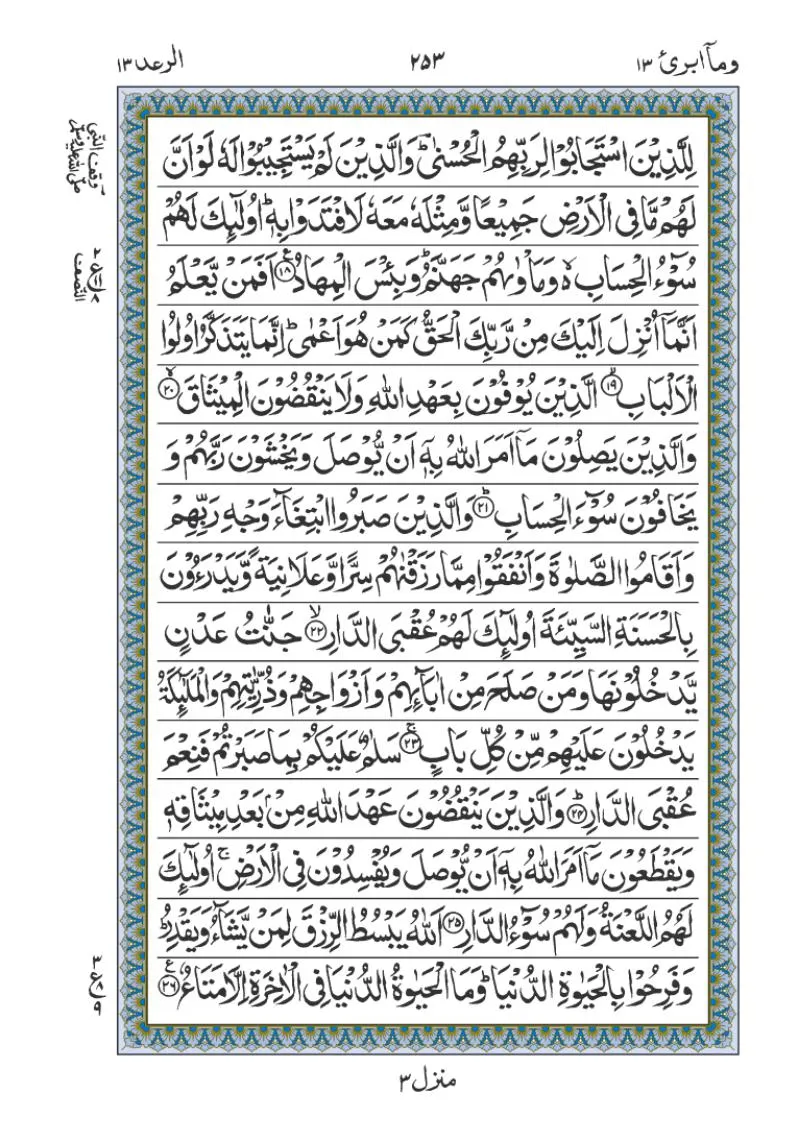 وماۤابرئ ١٣
٢٥٣
الرعد ١٣
لِلَّذِیْنَ اسْتَجَابُوْا لِرَبِّهِمُ الْحُسْنٰیؔؕ وَالَّذِیْنَ لَمْ یَسْتَجِیْبُوْا لَهٗ لَوْ اَنَّ
لَهُمْ مَّا فِی الْاَرْضِ جَمِیْعًا وَّمِثْلَهٗ مَعَهٗ لَافْتَدَوْا بِهٖؕ اُولٰٓىِٕكَ لَهُمْ
سُوْٓءُ الْحِسَابِ ۙ۬ وَمَاْوٰىهُمْ جَهَنَّمُؕ وَبِئْسَ الْمِهَادُ ﴿١٨﴾ اَفَمَنْ یَّعْلَمُ
اَنَّمَاۤ اُنْزِلَ اِلَیْكَ مِنْ رَّبِّكَ الْحَقُّ كَمَنْ هُوَ اَعْمٰیؕ اِنَّمَا یَتَذَكَّرُ اُولُوا
الْاَلْبَابِ ﴿١٩﴾ الَّذِیْنَ یُوْفُوْنَ بِعَهْدِ اللّٰهِ وَلَا یَنْقُضُوْنَ الْمِیْثَاقَ ﴿٢٠﴾
وَالَّذِیْنَ یَصِلُوْنَ مَاۤ اَمَرَ اللّٰهُ بِهٖۤ اَنْ یُّوْصَلَ وَیَخْشَوْنَ رَبَّهُمْ وَ
یَخَافُوْنَ سُوْٓءَ الْحِسَابِ ﴿٢١﴾ وَالَّذِیْنَ صَبَرُوا ابْتِغَآءَ وَجْهِ رَبِّهِمْ
وَاَقَامُوا الصَّلٰوةَ وَاَنْفَقُوْا مِمَّا رَزَقْنٰهُمْ سِرًّا وَّعَلَانِیَةً وَّیَدْرَءُوْنَ
بِالْحَسَنَةِ السَّیِّئَةَ اُولٰٓىِٕكَ لَهُمْ عُقْبَی الدَّارِ ﴿٢٢﴾ جَنّٰتُ عَدْنٍ
یَّدْخُلُوْنَهَا وَمَنْ صَلَحَ مِنْ اٰبَآىِٕهِمْ وَاَزْوَاجِهِمْ وَذُرِّیّٰتِهِمْ وَالْمَلٰٓىِٕكَةُ
یَدْخُلُوْنَ عَلَیْهِمْ مِّنْ كُلِّ بَابٍ ﴿٢٣﴾ سَلٰمٌ عَلَیْكُمْ بِمَا صَبَرْتُمْ فَنِعْمَ
عُقْبَی الدَّارِ ﴿٢٤﴾ وَالَّذِیْنَ یَنْقُضُوْنَ عَهْدَ اللّٰهِ مِنْۢ بَعْدِ مِیْثَاقِهٖ
وَیَقْطَعُوْنَ مَاۤ اَمَرَ اللّٰهُ بِهٖۤ اَنْ یُّوْصَلَ وَیُفْسِدُوْنَ فِی الْاَرْضِ ۚ اُولٰٓىِٕكَ
لَهُمُ اللَّعْنَةُ وَلَهُمْ سُوْٓءُ الدَّارِ ﴿٢٥﴾ اَللّٰهُ یَبْسُطُ الرِّزْقَ لِمَنْ یَّشَآءُ وَیَقْدِرُؕ
وَفَرِحُوْا بِالْحَیٰوةِ الدُّنْیَاؕ وَمَا الْحَیٰوةُ الدُّنْیَا فِی الْاٰخِرَةِ اِلَّا مَتَاعٌ ﴿٢٦﴾
وقف النبی
صلی اللہ علیہ وسلم
النصف
منزل ٣